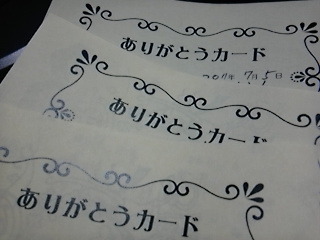 ありがとうカード
7月5日
ありがとうカード
ありがとうカード